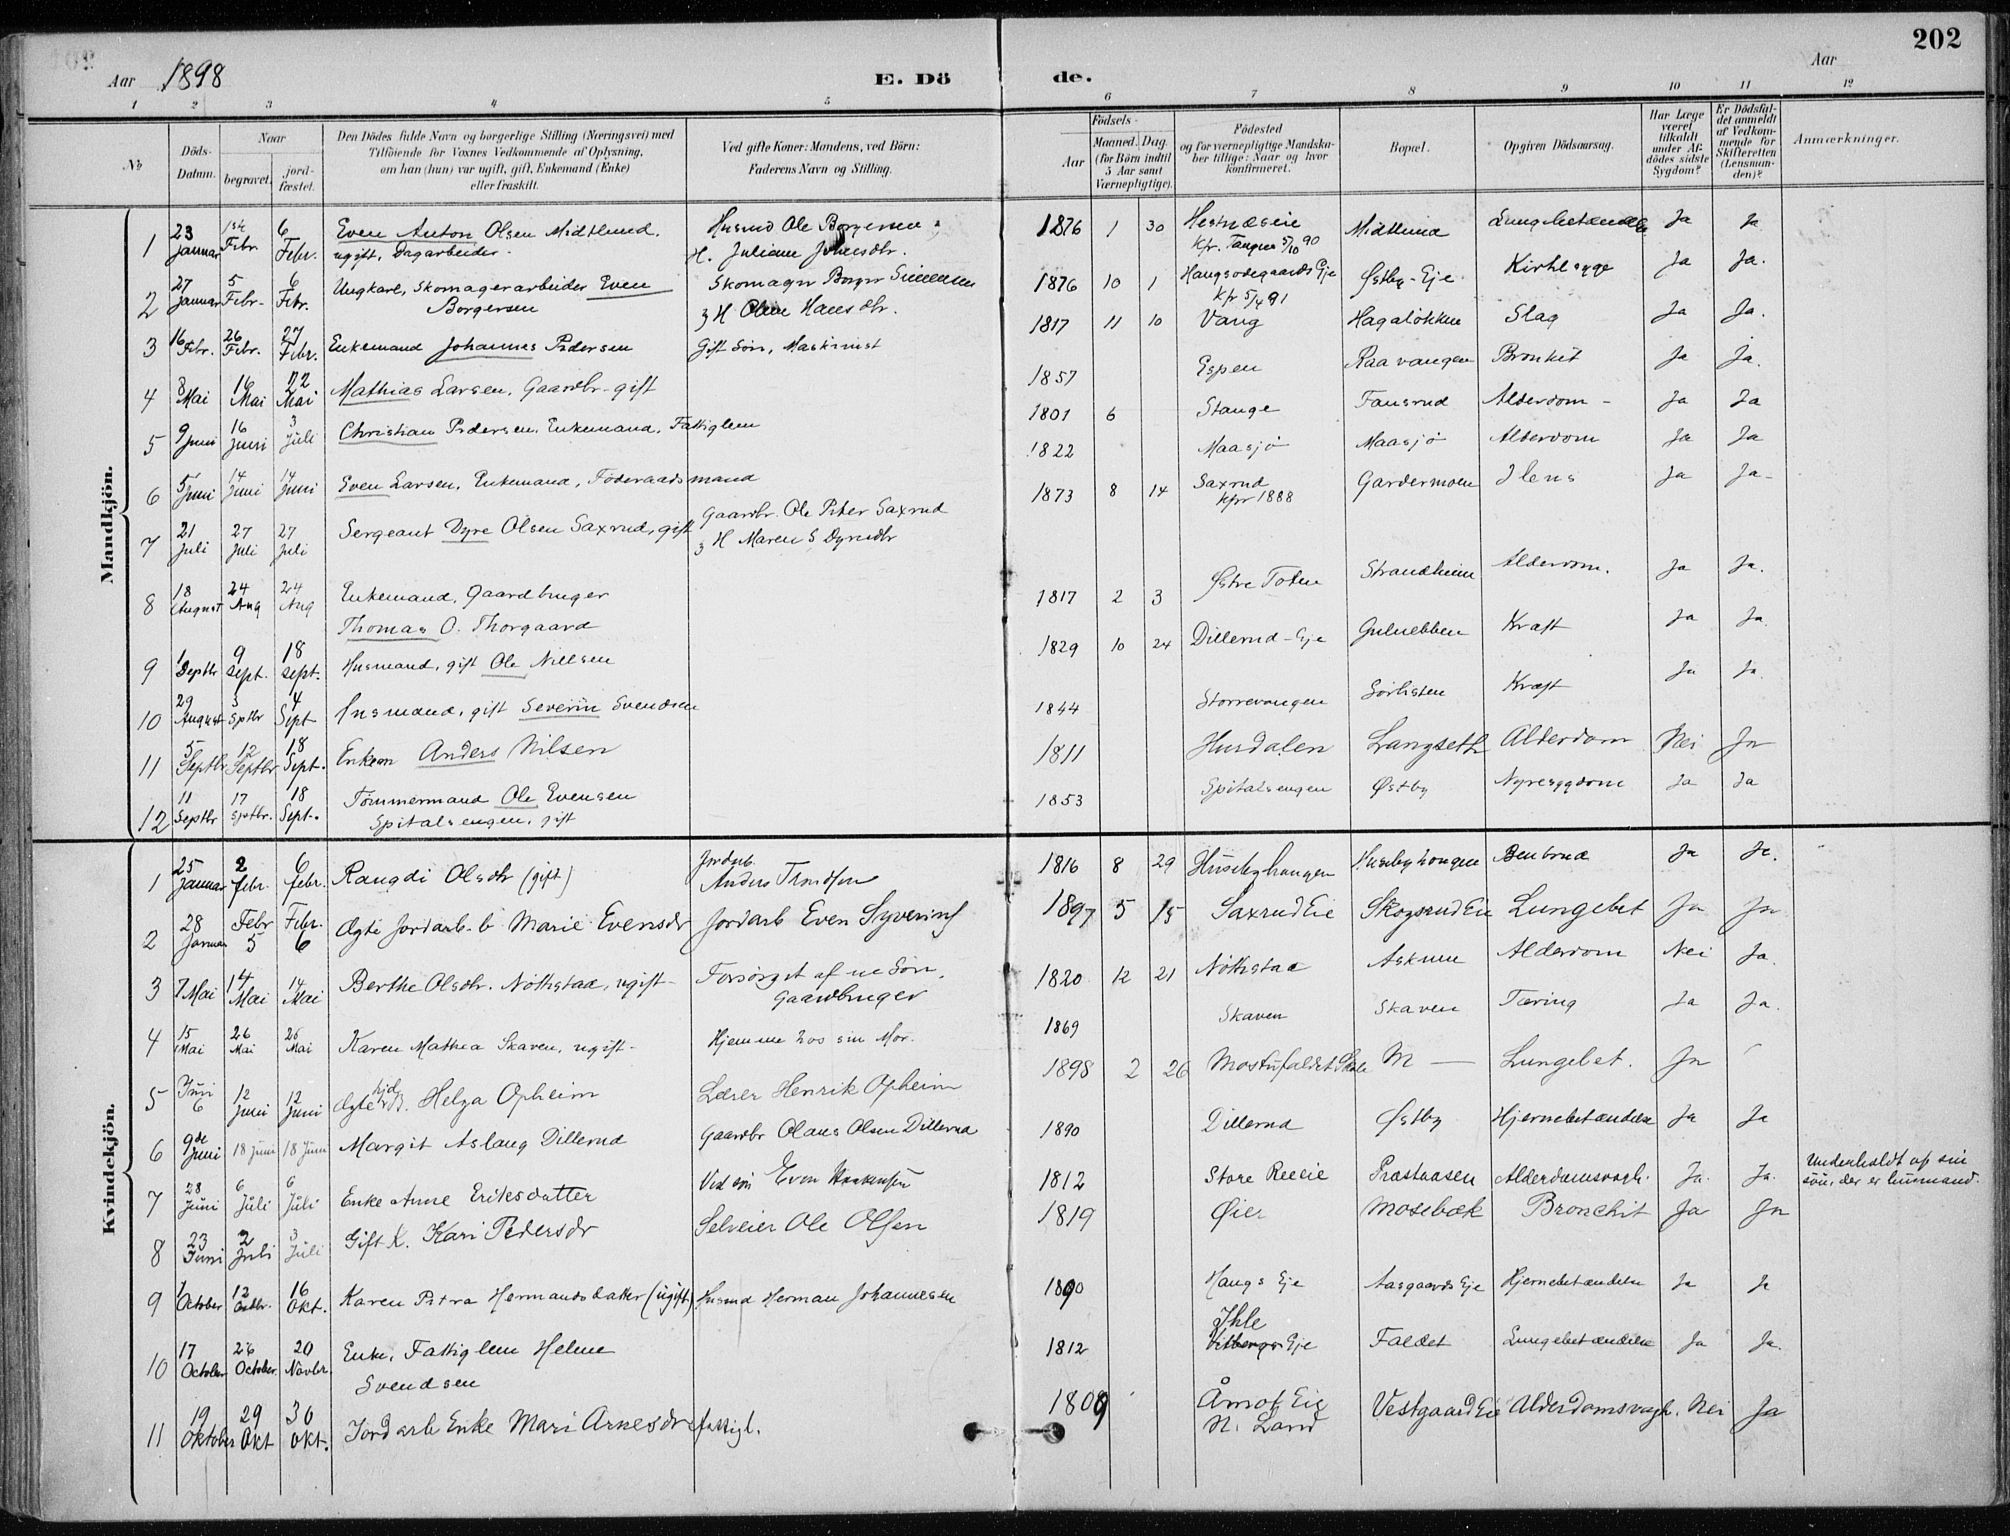 202
Aar 1898 E. Dö de. Aar
1 2 3 4 5 6 7 8 9 10 11 12
No
Döds-Datum.
Naar
begravet. jordfæstet.
Den Dödes fulde Navn og borgerlige Stilling (Næringsvei) med
Tilföiende for Voxnes Vedkommende af Oplysning,
om han (hun) var ugift, gift, Enkemand (Enke)
eller fraskilt.
Ved gifte Koner: Mandens, ved Börn:
Faderens Navn og Stilling.
Födsels-
Aar Maaned. Dag.
(for Börn indtil
5 Aar samt
Værnepligtige).
Födested
og for værnepligtige Mandskaber tillige: Naar og hvor
konfirmeret.
Bopæl.
Opgiven Dödsaarsag.
Har Læge
været
tilkaldt
under Afdödes sidste
Sygdom?
Er Dödsfaldet anmeldt
af Vedkommende for
Skifteretten
(Lensmanden)?
Anmærkninger.
Mandkjön.
1 23 Januar 1ste Febr. 6 Febr. Even Anton Olsen Midtlund, Husmd Ole Borgersen 1876 1 30 Hestnæseie Midtlund Lungebetændelse Ja Ja
ugift, Dagarbeider. H. Juliane Johnsdtr. Kfr. Tangen 5/10 90
2 27 Januar 5 Febr. 6 Febr. Ungkarl, Skomagerarbeider Even Skomager Borger Simensen 1876 10 1 Haugsodegaards Eje Østby-Eje Kirtlsyge Ja Ja.
Borgersen & H Oline Hansdtr. Kfr 5/4 91
3 16 Febr. 26 Febr. 27 Febr. Enkemand Johannes Pedersen Gift Søn, Maskinist 1817 11 10 Vang Hagaløkken Slag Ja Ja.
4 8 Mai 16 Mai 22 Mai Mathias Larsen, Gaardbr. gift 1857 Espen Raavangen Bronkit Ja Ja.
5 9 Juni 16 Juni 3 Juli Christian Pedersen, Enkemand, Fattiglem 1801 6 Stange Fansrud Alderdom - Ja Ja
6 5 Juni 14 Juni 14 Juni Even Larsen, Enkemand, Føderaadsmand 1822 Maasjø Maasjø Alderdom Ja Ja
7 21 Juli 27 Juli 27 Juli Sergeant Dyre Olsen Saxrud, gift Gaardbr. Ole Peter Saxrud 1873 8 14 Saxrud Gardermoen Ilens Ja Ja-
& H Maren S Dyresdtr Kfr 1888
8 18 August 24 Aug 24 Aug Enkemand, Gaardbruger 1817 2 3 Østre Toten Strandheim Alderdom. Ja Ja.
Thomas O. Thorgaard
9 1 Septbr 9 Sept. 18 Sept. Husmand, gift Ole Nielsen 1829 10 24 Dillerud-Eje Guluebben Kræft Ja Ja.
10 29 August 3 Sptbr 4 Sept Husmand, gift Severin Svendsen 1844 Storrevangen Sørlisten Kræft Ja Ja.
11 5 Septbr 12 Septbr 18 Sept. Enkem Anders Nilsen 1811 Hurdalen Langseth Alderdom Nei Ja
12 11 Septbr 17 Septbr. 18 Sept. Tømmermand Ole Evensen 1853 Spitalsengen Østby Nyresygdom Ja Ja
Spitalsengen, gift
Kvindekjön.
1 25 Januar 2 febr. 6 febr. Rangdi Olsdtr (gift) Jordarb. 1816 8 29 Husebyhaugen Husebyhaugen Benbrud Ja Ja.
2 28 Januar Febr 5 Febr. 6 Ægte Jordarb. b. Marie Evensdr Jordarb Even Syverins 1897 5 15 Saxrud Eie Skogsrud Eie Lungebet Ja Ja
3 7 Mai 14 Mai 14 Mai Berthe Olsdtr. Nøthstad, ugift- Forsørget af ne Søn, 1820 12 21 Nøthstad Askum Alderdom Nei Ja.
Gaardbruger
4 15 Mai 26 Mai 26 Mai Karen Mathea Skaven, ugift- Hjemme hos sin Mor. 1869 Skaven Skaven Tæring Ja Ja.
5 Juni 6 12 Juni 12 Juni Ægte B. Helga Opheim Lærer Henrik Opheim 1898 2 26 M — Lungebet. Ja
6 9de Juni 18 Juni 18 Juni Margit Aslaug Dillerud Gaardbr Olaus Olsen Dillerud 1890 Dillerud Østby Hjernebetændelse Ja Ja
7 28 Juni 6 Juli 6 Juli Enke Anne Eriksdatter Ved søn Even Haakensen 1812 Store Reeie Præstaasen Alderdomsvagh. Ja. Ja. Underholdt af sin
søn, der er husmand.
8 23 Juni 2 Juli 3 Juli Gift K. Kari Pedersdr Selveier Ole Olsen 1819 Øier Mosebæk Bronchit Ja Ja
9 1 October 12 Octbr. 16 Okt. Karen Petra Hermandsdatter (ugift) Husmd Herman Johannesen 1890 Haugs Eje Aasgaards Eje Hjernebetændelse Ja Ja
10 17 October 26 October 20 Novbr. Enke, Fattiglem Helene 1812 Ihle Faldet Lungebetændelse Ja Ja.
Svendsen
11 19 Oktober 29 Okt 30 Okt. Jordarb Enke Mari Arnesdr fattigl. 1809 Åmot Eie Vestgaard Eie Alderdomsvagh. Nei Ja
N. Land